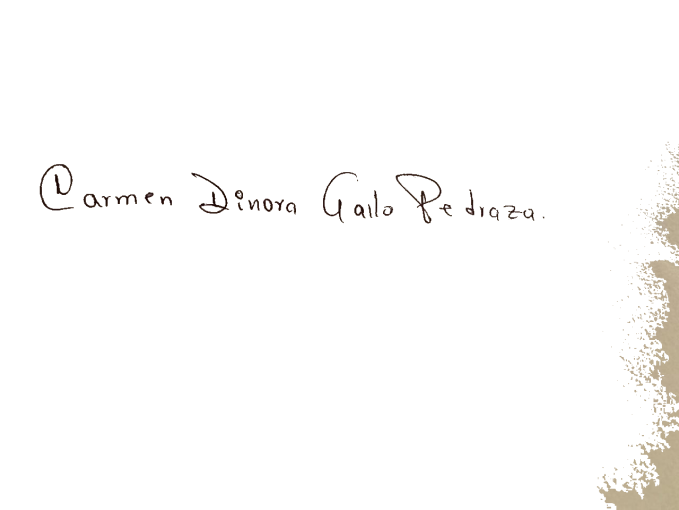 Carmen Dinora Gallo Pedraza.